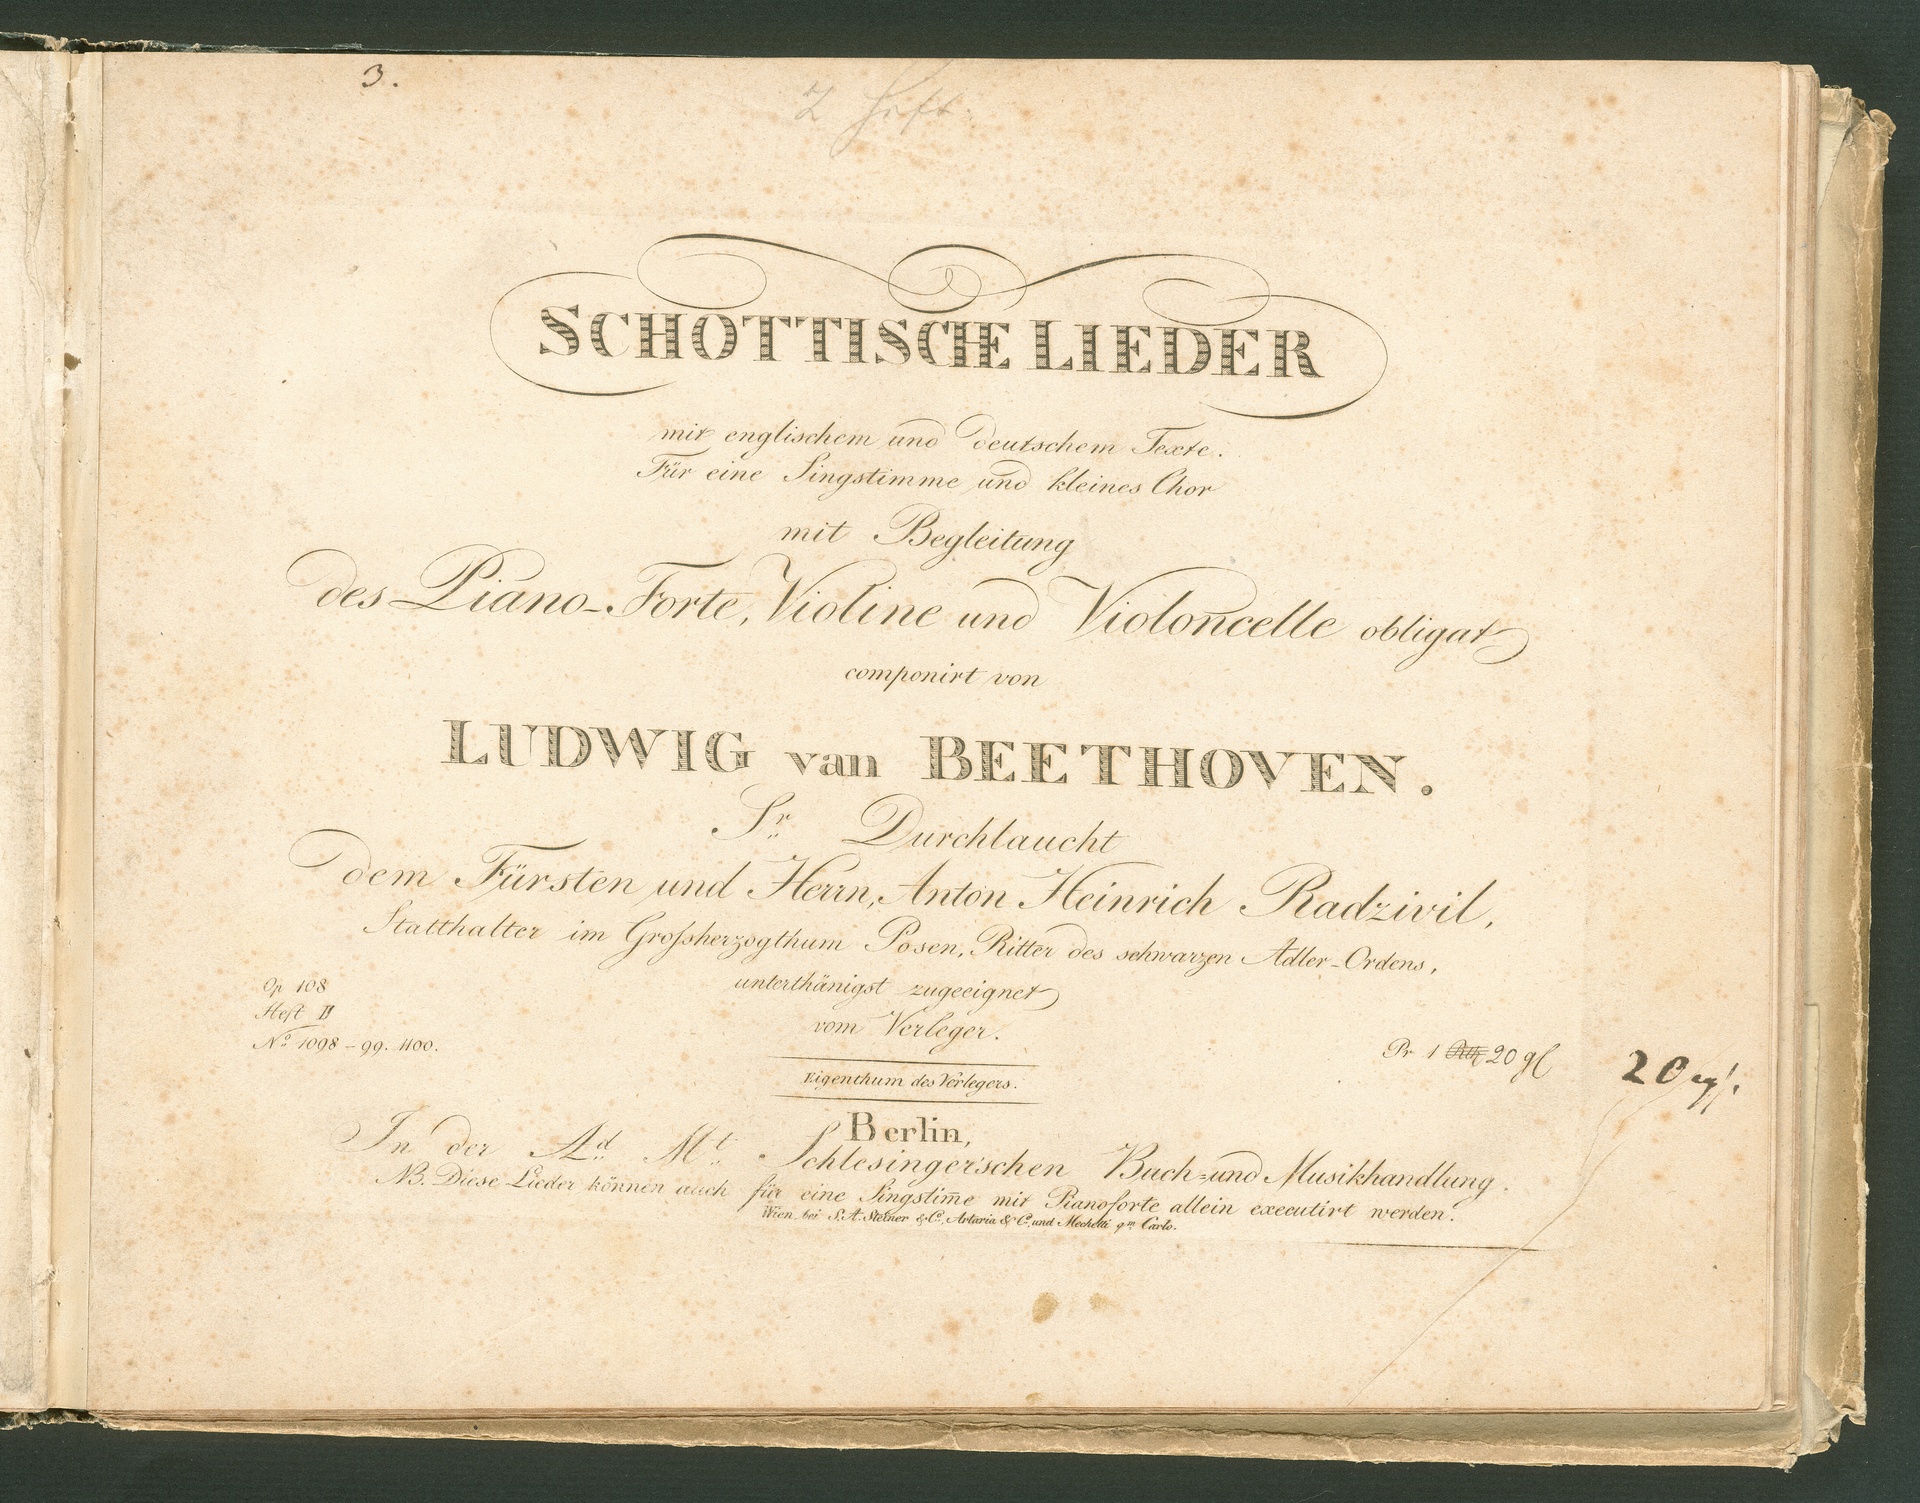 3.
2 Heft
SCHOTTISCHE LIEDER
mit englischem und deutschem Texte.
Für eine Singstimme und kleines Chor
mit Begleitung
des Piano-Forte, Violine und Violoncelle obligat
componirt von
LUDWIG van BEETHOVEN.
Sr. Durchlaucht
dem Fürsten und Herrn, Anton Heinrich Radzivil,
Statthalter im Grossherzogthum Posen, Ritter des schwarzen Adler-Ordens,
unterthänigst zugeeignet
vom Verleger.
Op 108
Heft II
No. 1098 - 99. 1100.
Pr 1 Rth 20 gl
20
Eigenthum des Verlegers.
Berlin,
In der Ad. Mt. Schlesinger'schen Buch- und Musikhandlung.
NB. Diese Lieder können auch für eine Singstim̄e mit Pianoforte allein executirt werden.
Wien bei S. A. Steiner & Co, Artaria & Co, und Mechetti qm Carlo.